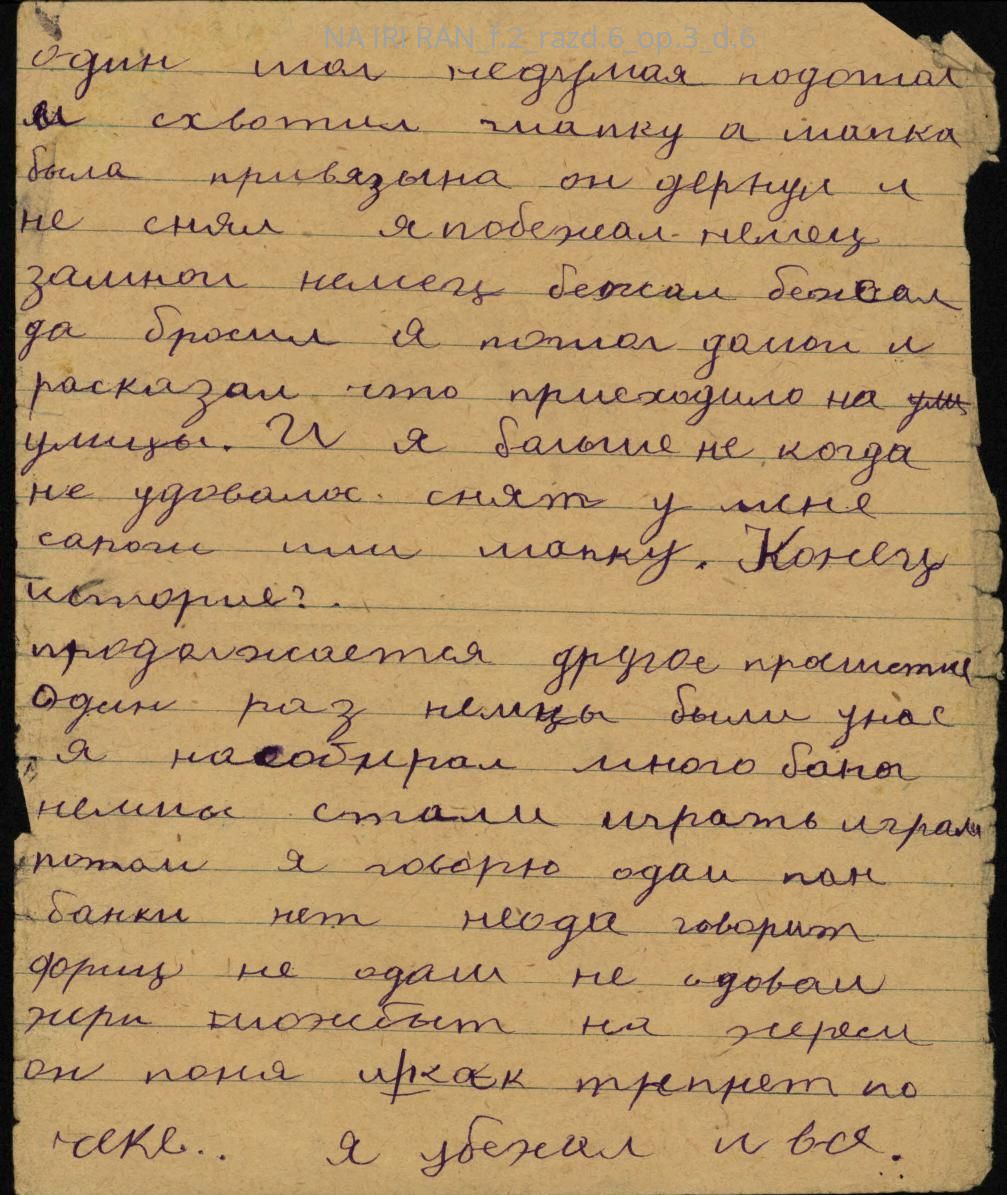 NA IRI RAN_f.2_razd.6_op.3_d.6
один шол недумая подошол
и схвотил шапку а шапка
была привязына он дернул и
не снял я побежал немец
замнои немец бежал бежал
да бросил я пошол дамои и
расказал что приеходило на улиц
улицы. И я больше не когда
не удовалос снят у мене
сапоги или шапку. Конец
историе?.
продолжается другое
один раз немцы были унас
я насобирал много банок
немцы стали играть играли
потом я говорю одаи пан
банки нет неода говорит
фриц не одаш не одоваи
жри можбыт на
он поня и как по
чеке.. я убежал и все.